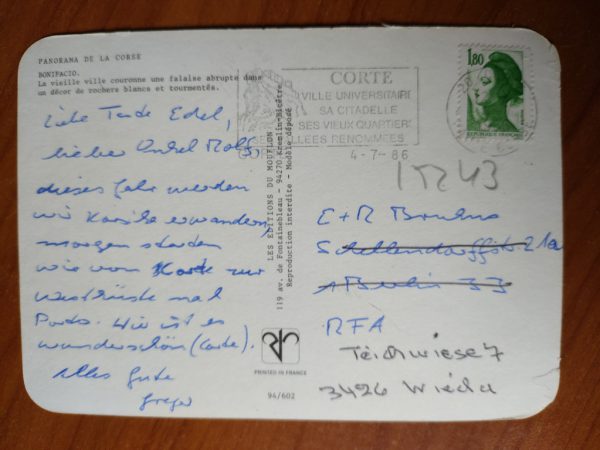 PANORAMA DE LA CORSE
BONIFACIO.
La vieille ville couronne une falaise abrupte dans
un décor de rochers blancs et tourmentés.
Liebe Tante Edel,
lieber Onkel Rolf,
dieses Jahr werden
wir Korsika erwandern,
morgen starten
wir von Corte zur
Westküste nach
Porto. Hier ist es
wunderschön (Corte).
Alles Gute
Gregor
LES EDITIONS DU MOUFLON
119 av. de Fontainebleau - 94270 Kremlin-Bicêtre
Reproduction interdite - Modèle déposé
PRINTED IN FRANCE
94/602
CORTE
VILLE UNIVERSITAIRE
SA CITADELLE
SES VIEUX QUARTIERS
SES VALLEES RENOMMEES
4-7-86
1,80
REPUBLIQUE FRANÇAISE
E+R
Schellendorffstr. 21a
1 Berlin 33
RFA
Teichwiese 7
3426 Wieda